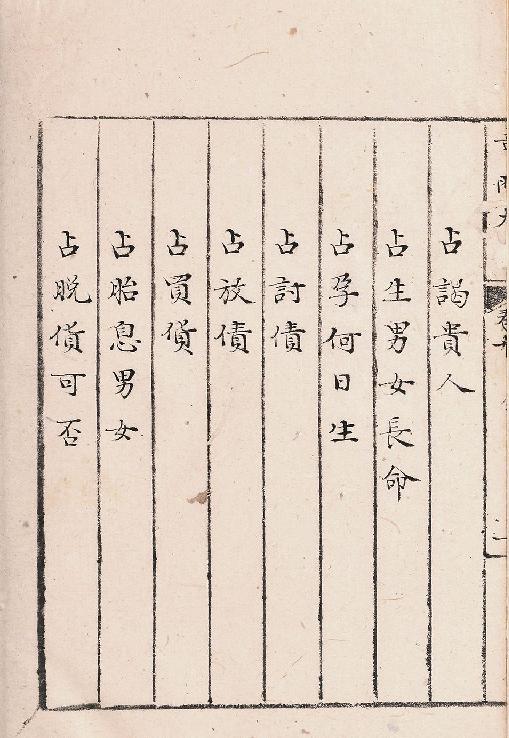 占謁貴人
占生男女長命
占孕何日生
占討債
占放債
占買貨
占胎息男女
占脫貨可否